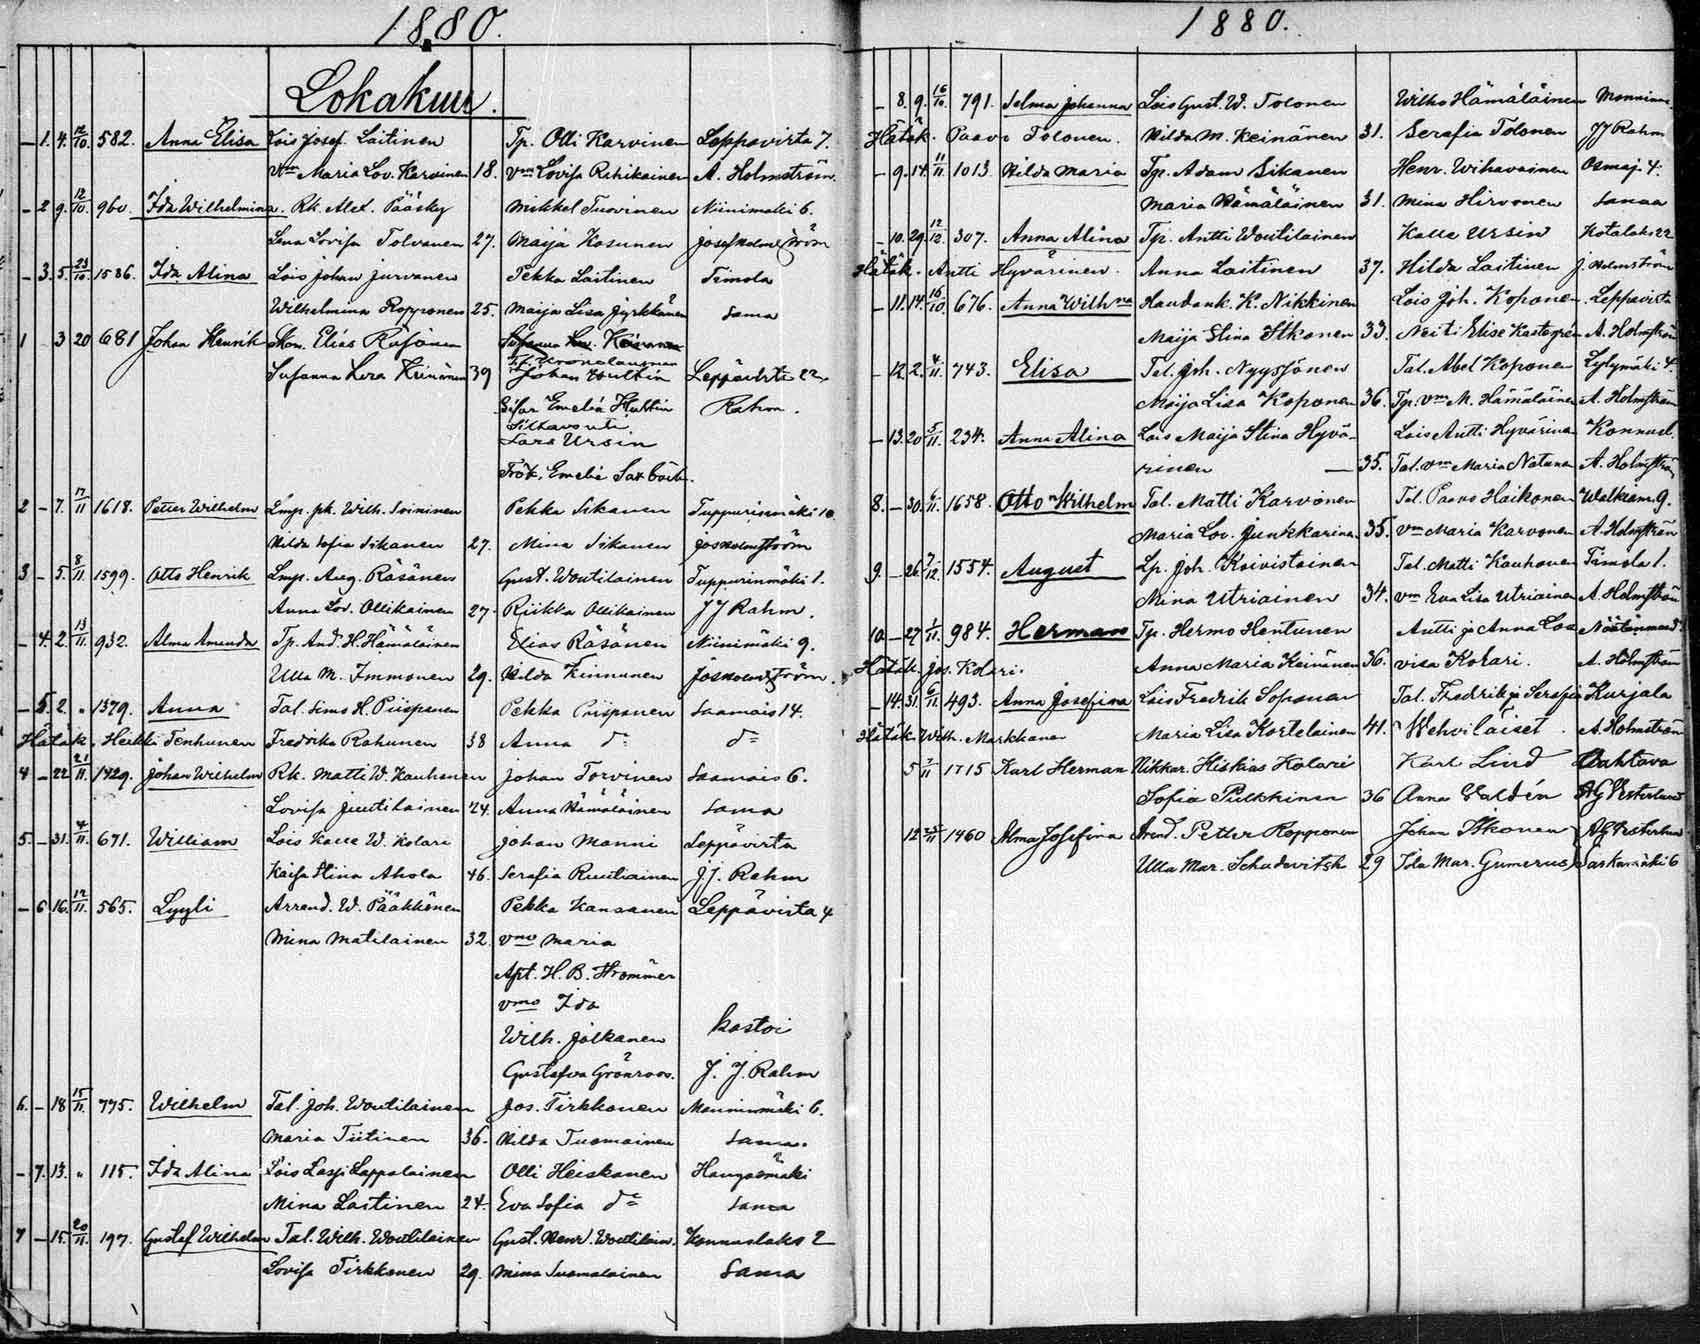 1880.
Lokakuu.
- 1. 4. 12/10. 582. Anna Elisa Lois Josef. Laitinen Tp. Olli Karvinen Leppävirta 7.
Vmo Maria Lov. Karvinen 18. Vmo Lovisa Rehikainen A. Holmström
- 2 9. 12/10. 960. Ida Wilhelmina. Rk. Alex. Pääsky Mikkel Tuovinen Niinimäki 6.
Lena Lovisa Tolvanen 27. Maija Kosunen Josef Holmström
- 3. 5. 23/10. 1586. Ida Alina Lois Johan Jurvanen Pekka Laitinen Timola
Wilhelmina Ropponen 25. Maija Lisa Jyrkkänen sama
1 3 20 681 Johan Henrik Elias Räsönen Susanna
Susanna Lova Keinänen 39 Johan Hultin Leppävirta 22.
Emelia Hultin Rahm.
Siltavouti
Lars Ursin
Frök. Emelie
2 - 7. 17/11 1618. Petter Wilhelm Lmp. pk. Wilh. Soininen Pekka Sikanen Tuppurinmäki 10
Hilda Sofia Sikanen 27. Mina Sikanen Jos Holmström
3 - 5. 8/11 1599. Otto Henrik Lmp. Aug. Räsänen Gust. Woutilainen Tuppurinmäki 1.
Anna Lov. Ollikainen 27. Riikka Ollikainen JJ Rahm.
- 4. 2. 13/11. 932. Alma Amanda Tp. And. H. Hämäläinen Elias Räsänen Niinimäki 9.
Ulla M. Immonen 29. Hilda Kinnunen Jos Holmström.
- 5. 2. " 1379. Anna Tal. Sims H. Piispanen Pekka Piispanen Saamais 14.
Hätäk. Heikki Tenhunen Fredrika Rahunen 38 Anna d:o d:o
4 - 22 21/11. 1429. Johan Wilhelm Rk. Matti W. Kauhanen Johan Torvinen Saamais 6.
Lovisa Juutilainen 24. Anna Hämäläinen sama
5. - 31. 4/11. 671. William Lois Kalle W. Kolari Johan Manni Leppävirta
Kaisa Stina Ahola 46. Serafia Ruutiainen J J. Rahm
- 6 16. 12/11. 565. Lyyli Arrend. W. Pääkkönen Pekka Kansanen Leppävirta 4
Mina Matilainen 32. Vmo Maria
Apt. H. B. Strömmer
Vmo Ida
Wilh. Jalkanen kastoi
Gustafva Grönroos. J. J. Rahm
6. - 18 15/11. 775. Wilhelm Tal. Joh. Woutilainen Jos. Tirkkonen Manninmäki 6.
Maria Tiitinen 36. Hilda Tuomainen sama.
- 7. 13. " 115. Ida Alina Lois Lassi Lappalainen Olli Heiskanen Kangasmäki
Mina Laitinen 24. Eva Sofia d:o sama
7 - 15. 20/11. 197. Gustaf Wilhelm Tal. Wilh. Woutilainen Gust. Henr. Woutilain. Konnuslaks 2
Lovisa Tirkkonen 29. Mina Suomalainen sama
1880.
- 8. 9. 16/10. 791. Selma Johanna Lois Gust. W. Tolonen Wilho Hämäläinen Manninm.
Hätäk. Paavo Tolonen. Hilda M. Keinänen 31. Serafia Tolonen JJ Rahm
- 9. 14. 11/11. 1013. Hilda Maria Tp. Adam Sikanen Henr. Wihavainen Osmaj. 4.
Maria Hämäläinen 31. Mina Hirvonen samaa
- 10. 29. 12/12. 307. Anna Alina Tp. Antti Woutilainen Kalle Ursin Kotalaks 22
Hätäk. Antti Hyvärinen. Anna Laitinen 37. Hilda Laitinen J. Holmström
- 11. 14. 16/10. 676. Anna Wilhna Haudank. K. Nikkinen Lois Joh. Koponen. Leppävirta
Maija Stina Itkonen 33. Neiti Elise Kastegren A. Holmström
- 12. 2. 4/11. 743. Elisa Tal. Joh. Nyyssönen Tal. Abel Koponen Lylymäki 4
Maija Lisa Koponen 36. Tp. Vmo M. Hämäläinen A. Holmström
- 13. 20 5/11. 234. Anna Alina Lois Maija Stina Hyvä- Lois Antti Hyvärinen Konnusl.
rinen — 35. Tal. Vmo Maria Natunen A. Holmström
8. - 30. 6/11. 1658. Otto Wilhelm Tal. Matti Karvonen Tal. Paavo Haikonen Walkiam 9.
Maria Lov. Junkkarinen 35. Vmo Maria Karvonen A. Holmström
9. - 26. 7/12. 1554. August Lp. Joh. Koivistoinen Tal. Matti Kauhanen Timola 1.
Mina Utriainen 34. Vmo Eva Lisa Utriainen A. Holmström
10 - 27 1/11. 984. Herman Tp. Hermo Hentunen Antti ja Anna Lo-
Hätäk. Jos. Kolari. Anna Maria Keinänen 36. visa Kolari. A. Holmström
- 14. 31. 6/11. 493. Anna Josefina Lois Fredrik Soponen Tal. Fredrik ja Serafia Kurjala
Hätäk. Wilh. Markkanen Maria Lisa Kortelainen 41. Wehviläiset. A. Holmström
5 2/11 1715 Karl Herman Nikkar. Hiskias Kolari Karl Lind Oahtava
Sofia Pulkkinen 36 Anna Waldén AG Vesterlund
12 1460 Alma Josefina Arend. Petter Ropponen Johan Itkonen AG Vesterlund
Ulla Mar. Schadevitsh 29 Ida Mar. Gumerus Saskamäki 6